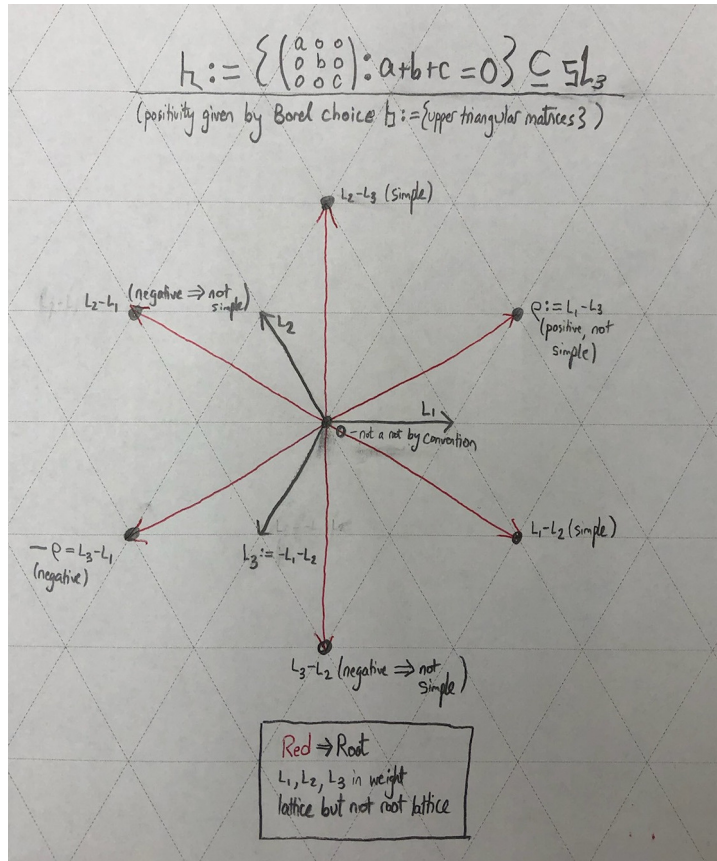 h := {(a 0 0
0 b 0
0 0 c) : a+b+c = 0} ⊆ sl₃
(positivity given by Borel choice b := {upper triangular matrices})
L₂-L₃ (simple)
L₂-L₁ (negative ⇒ not
simple)
L₂
ρ := L₁-L₃
(positive, not
simple)
L₁
0 - not a root by convention
-ρ = L₃-L₁
(negative)
L₃ := -L₁-L₂
L₁-L₂ (simple)
L₃-L₂ (negative ⇒ not
simple)
Red ⇒ Root
L₁, L₂, L₃ in weight
lattice but not root lattice